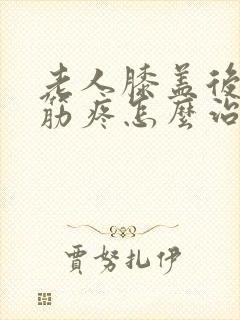 老人膝盖後
筋疼怎麼治
賈努扎伊